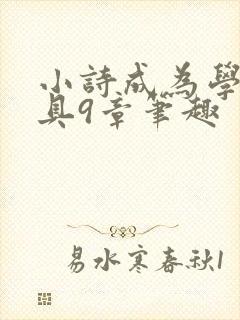 小詩成為學
具9章筆趣
易水寒春秋1